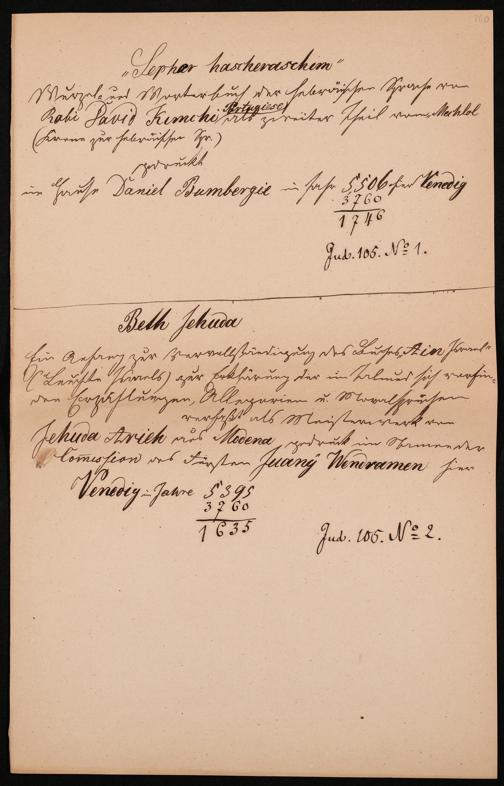 160
„Sepher hascheraschim“
Wurzel- und Wörterbuch der hebräischen Sprache von
Rabi David Kimchi Portugiese als zweiter Theil von Mechlol
(Krone zur hebräischen Spr.)
gedruckt
im Hause Daniel Bumbergie im Jahr 5506 hier Venedig
3760
1746
Jud. 105. No 1.
Beth Jehuda
Ein Anhang zur Vervollständigung des Buches Ain Israel
(Leuchte Israels) zur Erklärung der im Talmud sich vorfin-
den Erzählungen, Allegorien u. Moralsprüchen
verfaßt als Meisterwerk von
Jehuda Arieh aus Modena, gedruckt im Namen der
Comission des Fürsten Juany Wendramen hier
Venedig im Jahre 5395
3760
1635
Jud. 105. No 2.